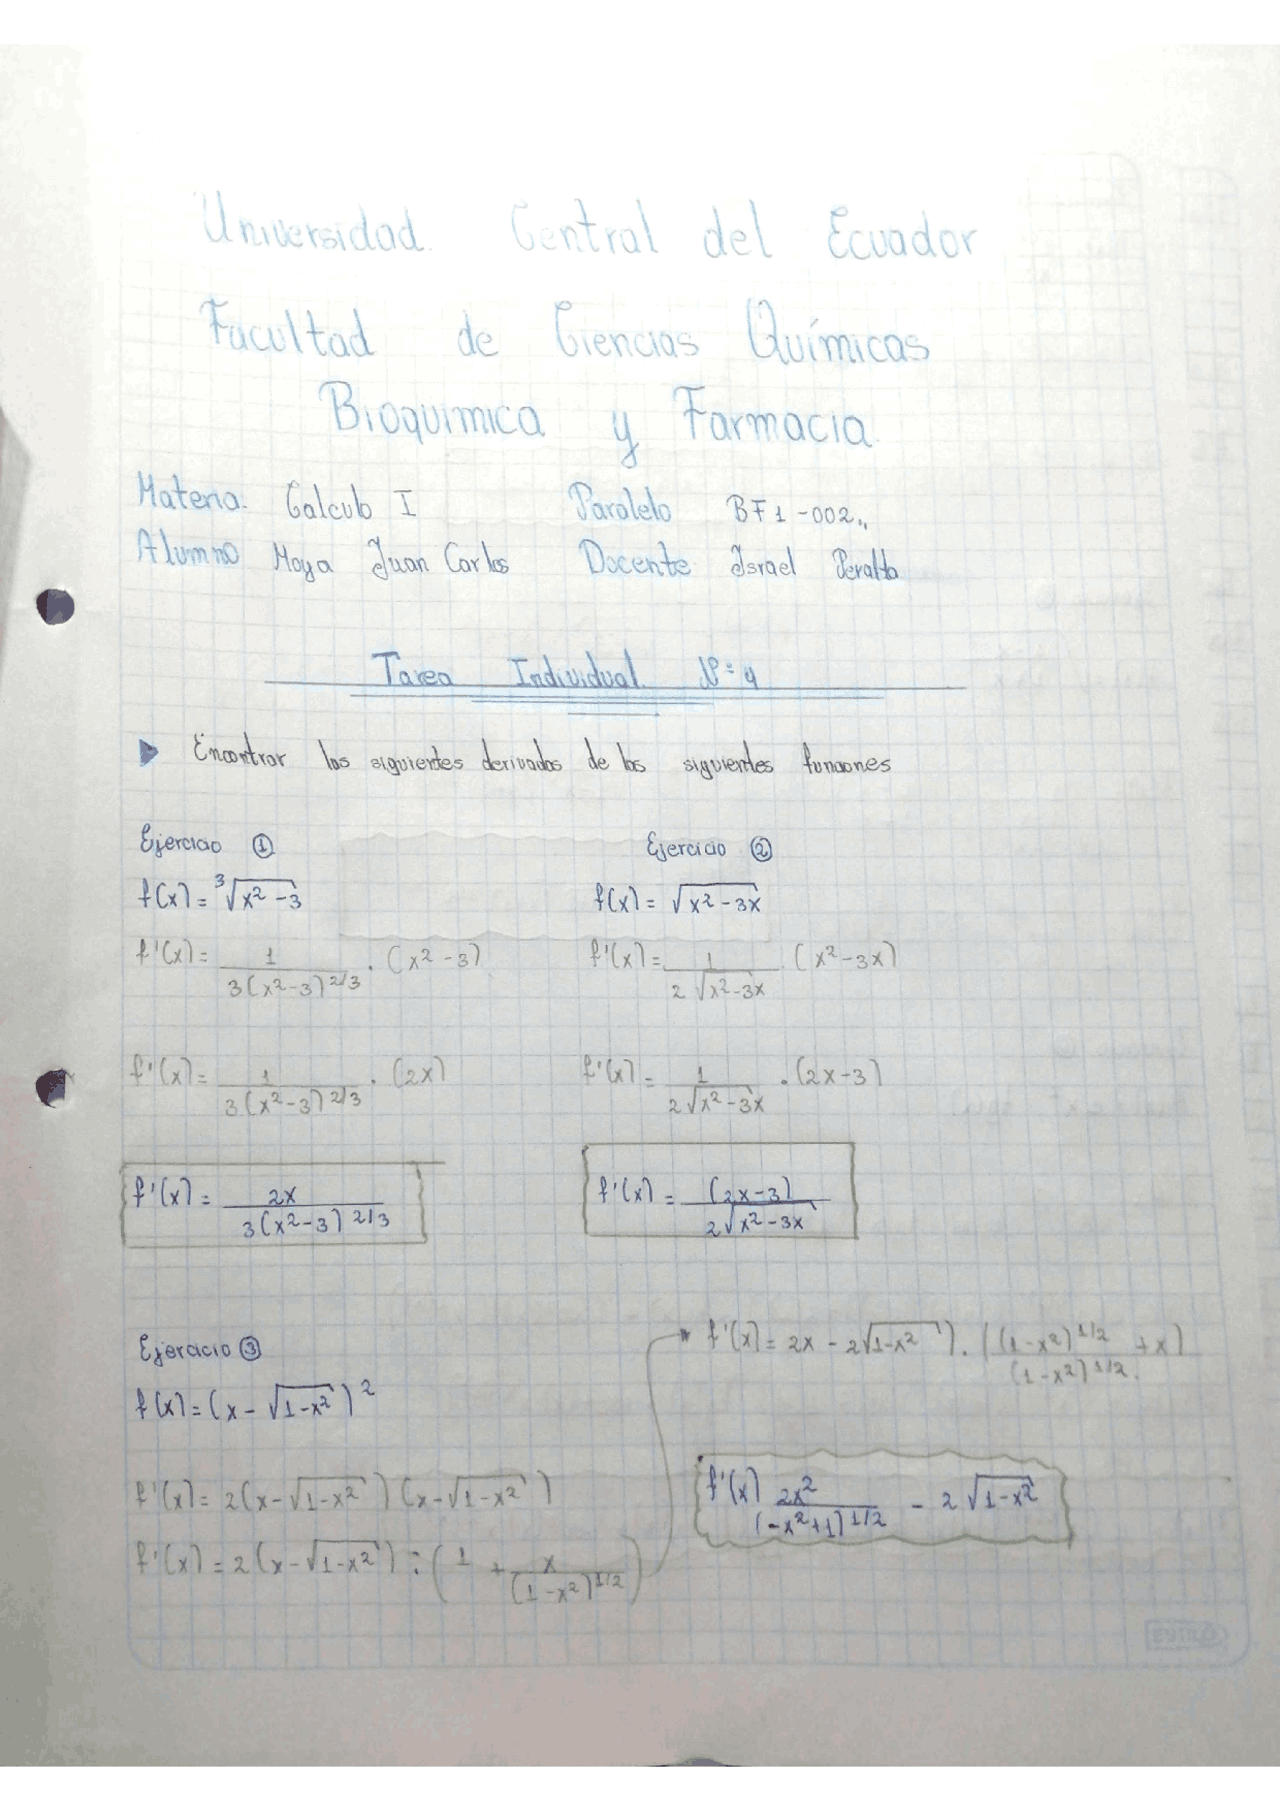 Universidad. Central del Ecuador
Facultad de Ciencias Químicas
Bioquimica y Farmacia.
Materia. Calculo I Paralelo BF1-002.,
Alumno Moya Juan Carlos Docente Israel Peralta
Tarea Individual. Nº=4
► Encontrar las siguientes derivadas de las siguientes funciones
Ejercicio ① Ejercicio ②
f(x)= ³√(x²-3) f(x)= √(x²-3x)
f'(x)= 1/(3(x²-3)^2/3) . (x²-3) f'(x)= 1/(2√(x²-3x)) . (x²-3x)
f'(x)= 1/(3(x²-3)^2/3) . (2x) f'(x)= 1/(2√(x²-3x)) . (2x-3)
f'(x)= 2x/(3(x²-3)^2/3) f'(x)= (2x-3)/(2√(x²-3x))
Ejercicio ③
f(x)=(x-√(1-x²))²
f'(x)=2(x-√(1-x²))(x-√(1-x²))
f'(x)=2(x-√(1-x²)) : (1 + x/(1-x²)^1/2)
f'(x)= 2x - 2√(1-x²)) . (((1-x²)^1/2 + x)/(1-x²)^1/2.
f'(x) 2x²/(-x²+1)^1/2 - 2√(1-x²)
ESTILO